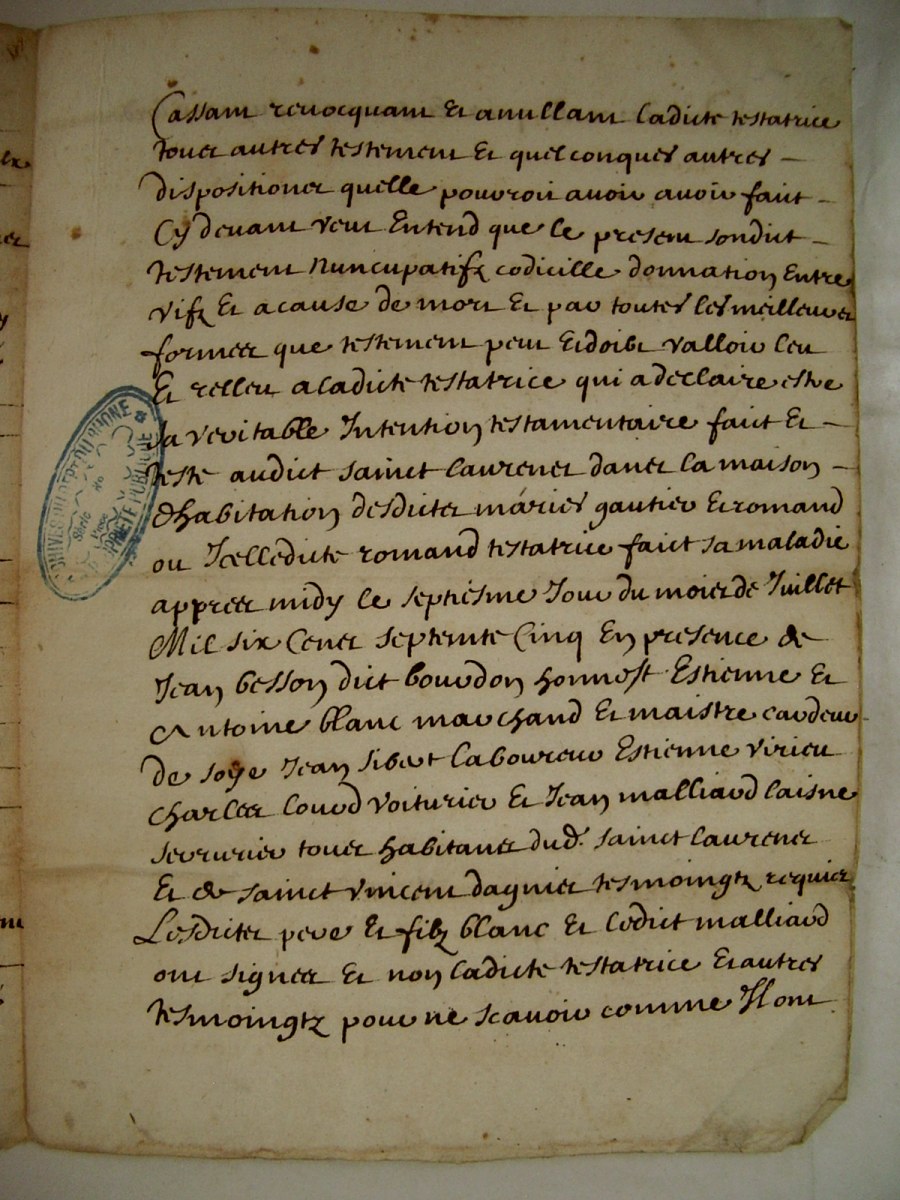 Cassant revocquant et anullant ladicte testatrice
tous autres testement et quelconques autres -
dispositiones quelle pouvroit avoir avoir faict -
Cy devant veut Entend que le present sondict -
testement nuncupatifz codicille donnation Entre
vifz et a cause de mort et par toutes les meilleures
formes que testement peut et doibt valloir leu
Et relleu a ladicte testatrice qui a declaire estre
sa veritable Intention testamentaire faict et -
teste audict sainct laurens dans la maison -
dhabitation desdictes máries gautier et romand
ou Icelledicte romand testatrice faict sa maladie
appres midy le septiesme Jour du mois de Juillet
Mil six Cens septente Cinq En presence de
Jean besson dict bourdon honnest Estienne et
Antoine blanc marchand et maistre cardeur
de soye Jean sibert laboureur Estienne virieu
Charles lourd voiturier et Jean malliard laisne
serrurier tous habitans dud. sainct laurens
Et de sainct vincent dagnies tesmoingtz requies
Lesdictes pere et filz blanc et ledict malliard
ont signes et non ladicte testatrice et autres
tesmoingtz pour ne scavoir comme Ilont